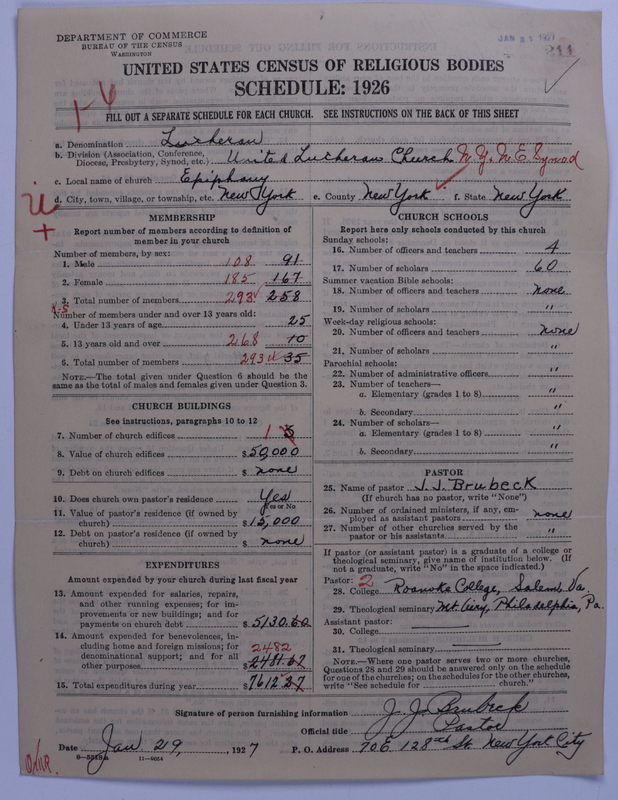 DEPARTMENT OF COMMERCE
BUREAU OF THE CENSUS
WASHINGTON
JAN 31 1927
211
UNITED STATES CENSUS OF RELIGIOUS BODIES
SCHEDULE: 1926
1-4
FILL OUT A SEPARATE SCHEDULE FOR EACH CHURCH. SEE INSTRUCTIONS ON THE BACK OF THIS SHEET
a. Denomination Lutheran
b. Division (Association, Conference, Diocese, Presbytery, Synod, etc.) United Lutheran Church N.Y. & N.E. Synod
c. Local name of church Epiphany
d. City, town, village, or township, etc. New York e. County New York f. State New York
MEMBERSHIP
Report number of members according to definition of member in your church
Number of members, by sex:
1. Male 108 91
2. Female 185 167
3. Total number of members 293 258
Number of members under and over 13 years old:
4. Under 13 years of age 25
5. 13 years old and over 268 10
6. Total number of members 293 35
NOTE.—The total given under Question 6 should be the same as the total of males and females given under Question 3.
CHURCH BUILDINGS
See instructions, paragraphs 10 to 12
7. Number of church edifices 1
8. Value of church edifices $50,000
9. Debt on church edifices $ none
10. Does church own pastor's residence Yes
Yes or No
11. Value of pastor's residence (if owned by church) $15,000
12. Debt on pastor's residence (if owned by church) $ none
EXPENDITURES
Amount expended by your church during last fiscal year
13. Amount expended for salaries, repairs, and other running expenses; for improvements or new buildings; and for payments on church debt $5130.60
14. Amount expended for benevolences, including home and foreign missions; for denominational support; and for all other purposes 2482 $2481.67
15. Total expenditures during year $7612.27
CHURCH SCHOOLS
Report here only schools conducted by this church
Sunday schools:
16. Number of officers and teachers 4
17. Number of scholars 60
Summer vacation Bible schools:
18. Number of officers and teachers none
19. Number of scholars "
Week-day religious schools:
20. Number of officers and teachers none
21. Number of scholars "
Parochial schools:
22. Number of administrative officers "
23. Number of teachers—
a. Elementary (grades 1 to 8) "
b. Secondary "
24. Number of scholars—
a. Elementary (grades 1 to 8) "
b. Secondary "
PASTOR
25. Name of pastor J. J. Brubeck
(If church has no pastor, write "None")
26. Number of ordained ministers, if any, employed as assistant pastors none
27. Number of other churches served by the pastor or his assistants "
If pastor (or assistant pastor) is a graduate of a college or theological seminary, give name of institution below. (If not a graduate, write "No" in the space indicated.)
Pastor: 2
28. College Roanoke College, Salem Va.
29. Theological seminary Mt. Airy, Philadelphia, Pa.
Assistant pastor:
30. College
31. Theological seminary
NOTE.—Where one pastor serves two or more churches, Questions 28 and 29 should be answered only on the schedule for one of the churches; on the schedules for the other churches, write "See schedule for church."
Signature of person furnishing information J. J. Brubeck
Official title Pastor
Date Jan. 29, 1927 P. O. Address 70 E. 128th St. New York City
11-9054